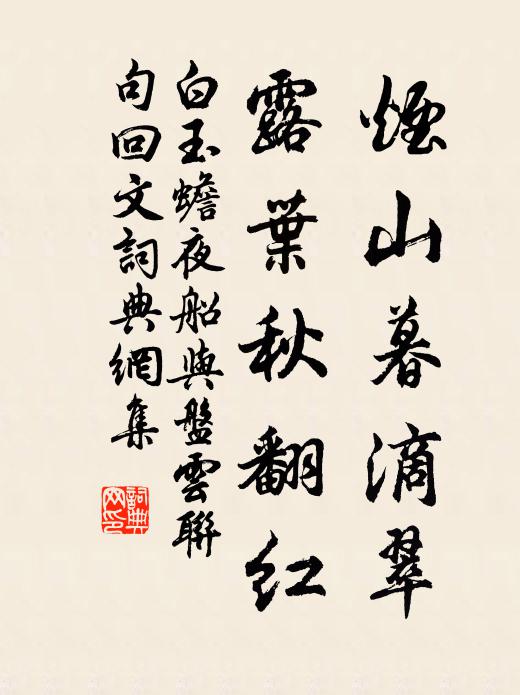 煙山暮滴翠
露葉秋翻紅
白玉蟾夜船與盤雲聯
句回文詞典網集
詞典
网印